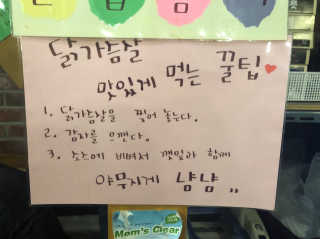 닭가슴살
맛있게 먹는 꿀팁
1. 닭가슴살을 찢어 놓는다.
2. 감자를 으깬다.
3. 소스에 비벼서 깻잎과 함께
야무지게 냠냠,,
Mom's Clear